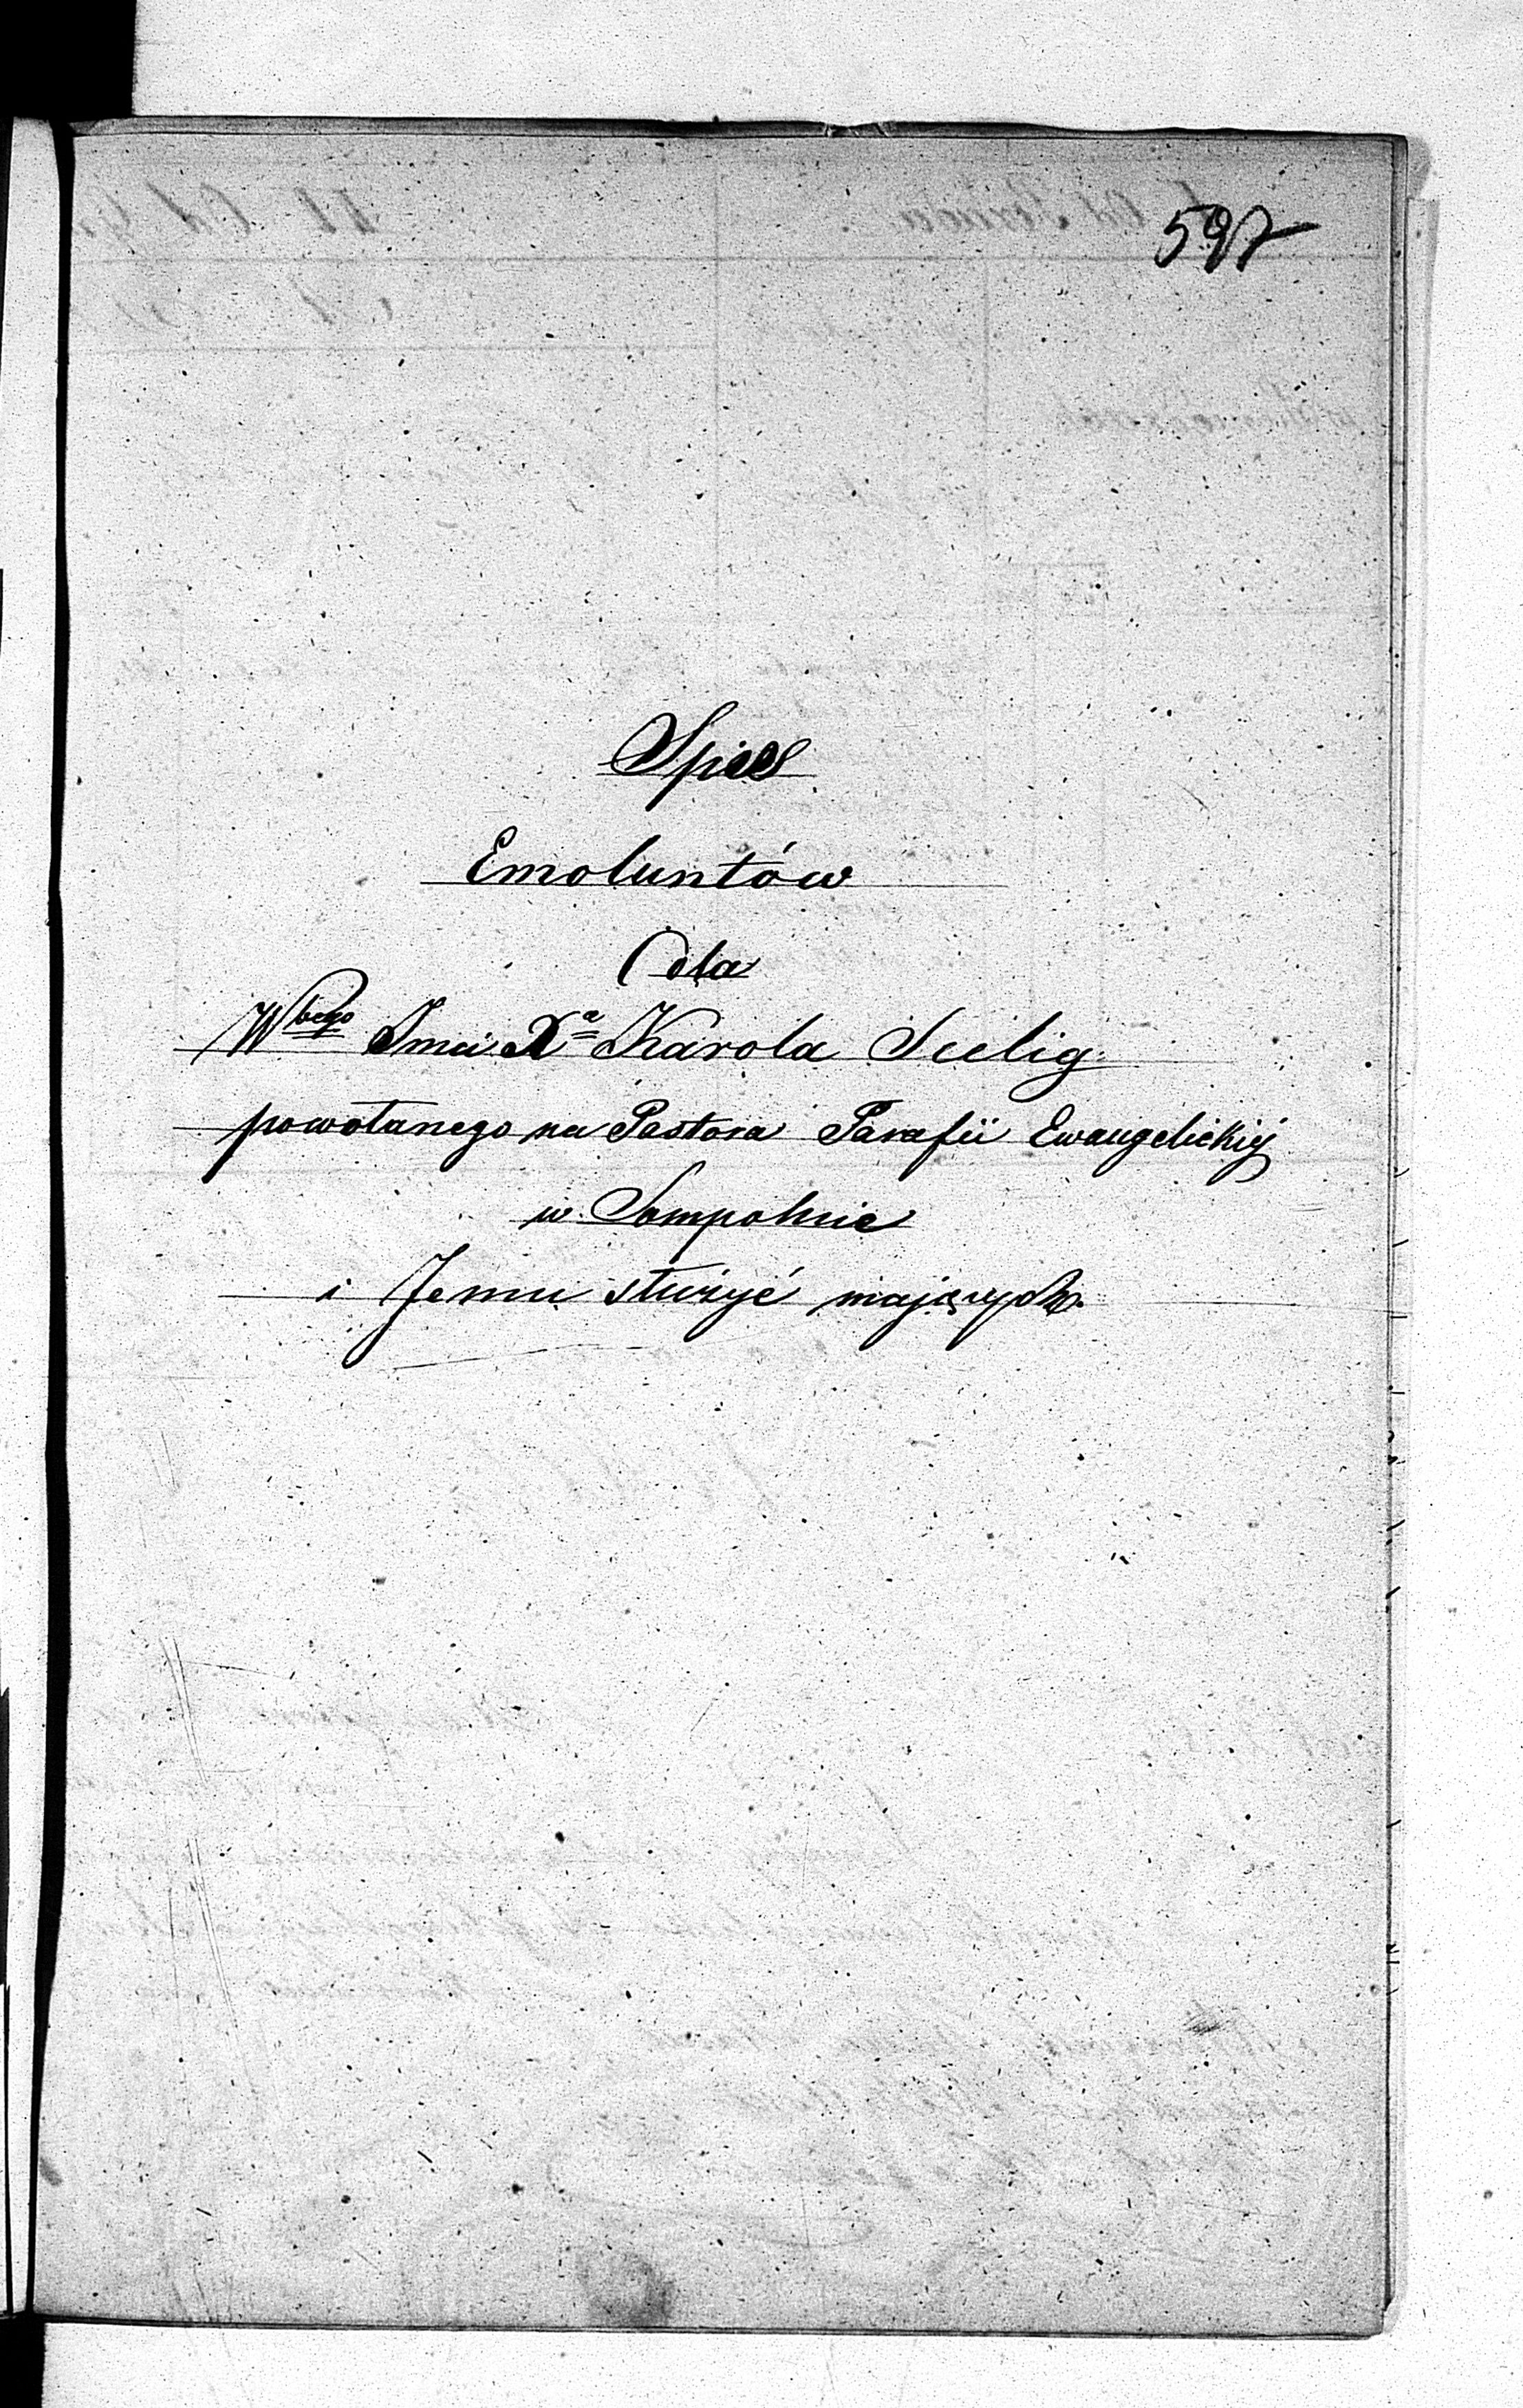 597
Spis
Emoluntów
dla
Wbego Jmci Xa Karola Seelig
powołanego na Pastora Parafii Ewangelickiéj
w Sompolnie
i Jemu służyć mających.